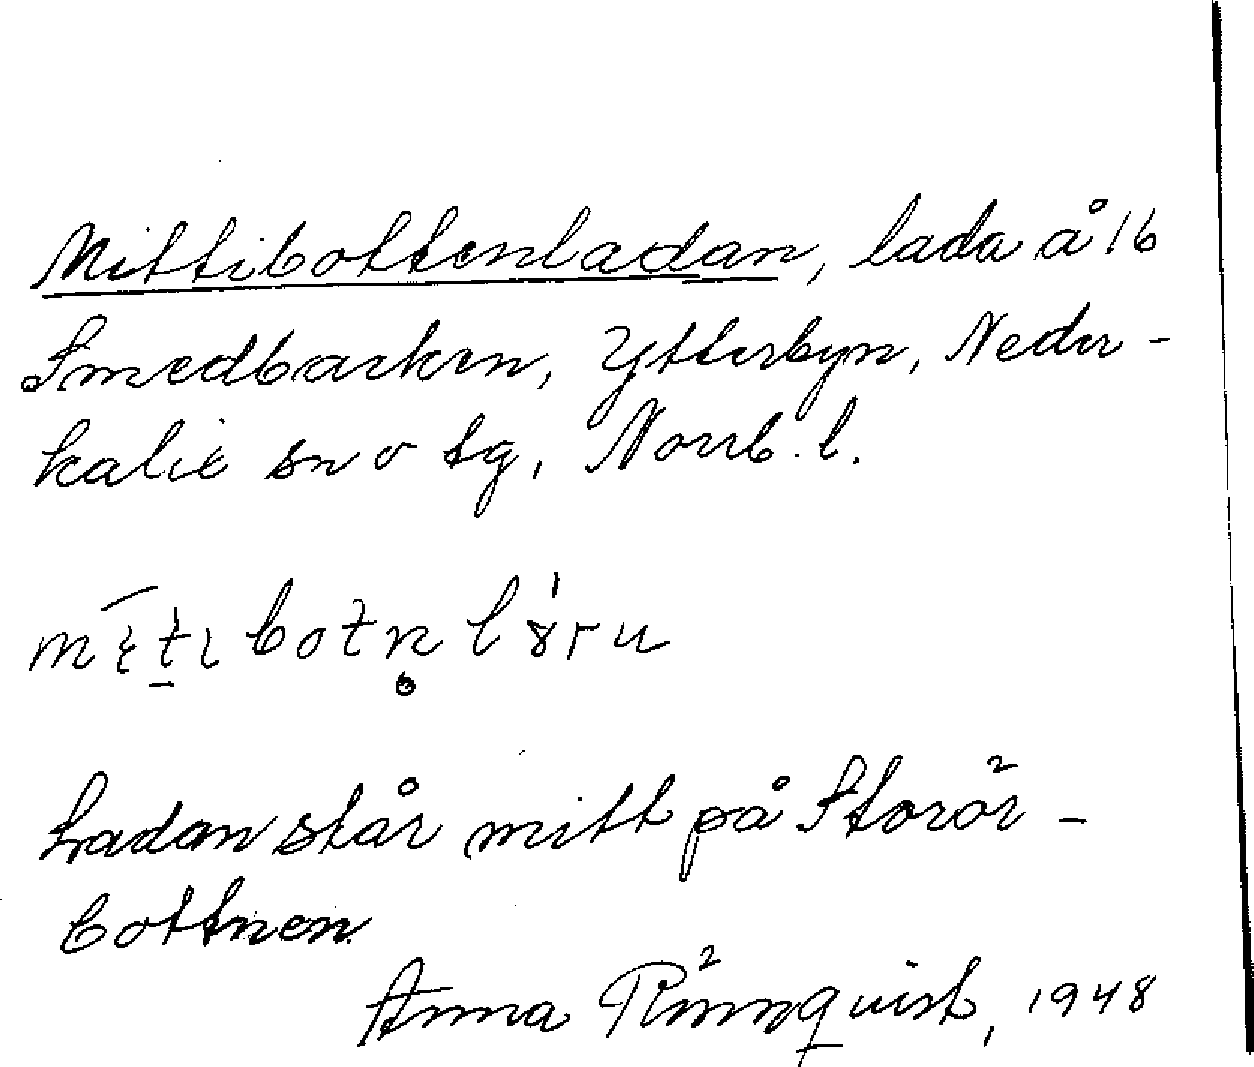 Mittibottenladan, lada å 16
Smedbacken, Ytterbyn, Neder-
kalix sn o tg, Norrb. l.
Ladan står mitt på Storör-
bottnen.
Anna Rönnquist, 1948